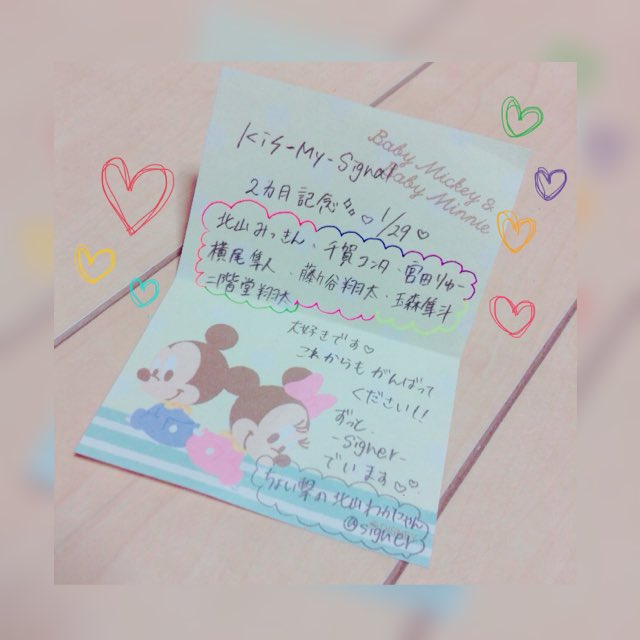 Baby Mickey &
Baby Minnie
Kis-My-Signal
2カ月記念々♡ 1/29♡
北山みっきん、千賀コンタ、宮田りゅ〜
横尾隼人、藤ヶ谷翔太、玉森隼斗
二階堂翔太
大好きです♡
これからもがんばって
ください!!
ずっと
-signer-
でいます♡♡
ちょい堅の北山わかにゃん
@signer